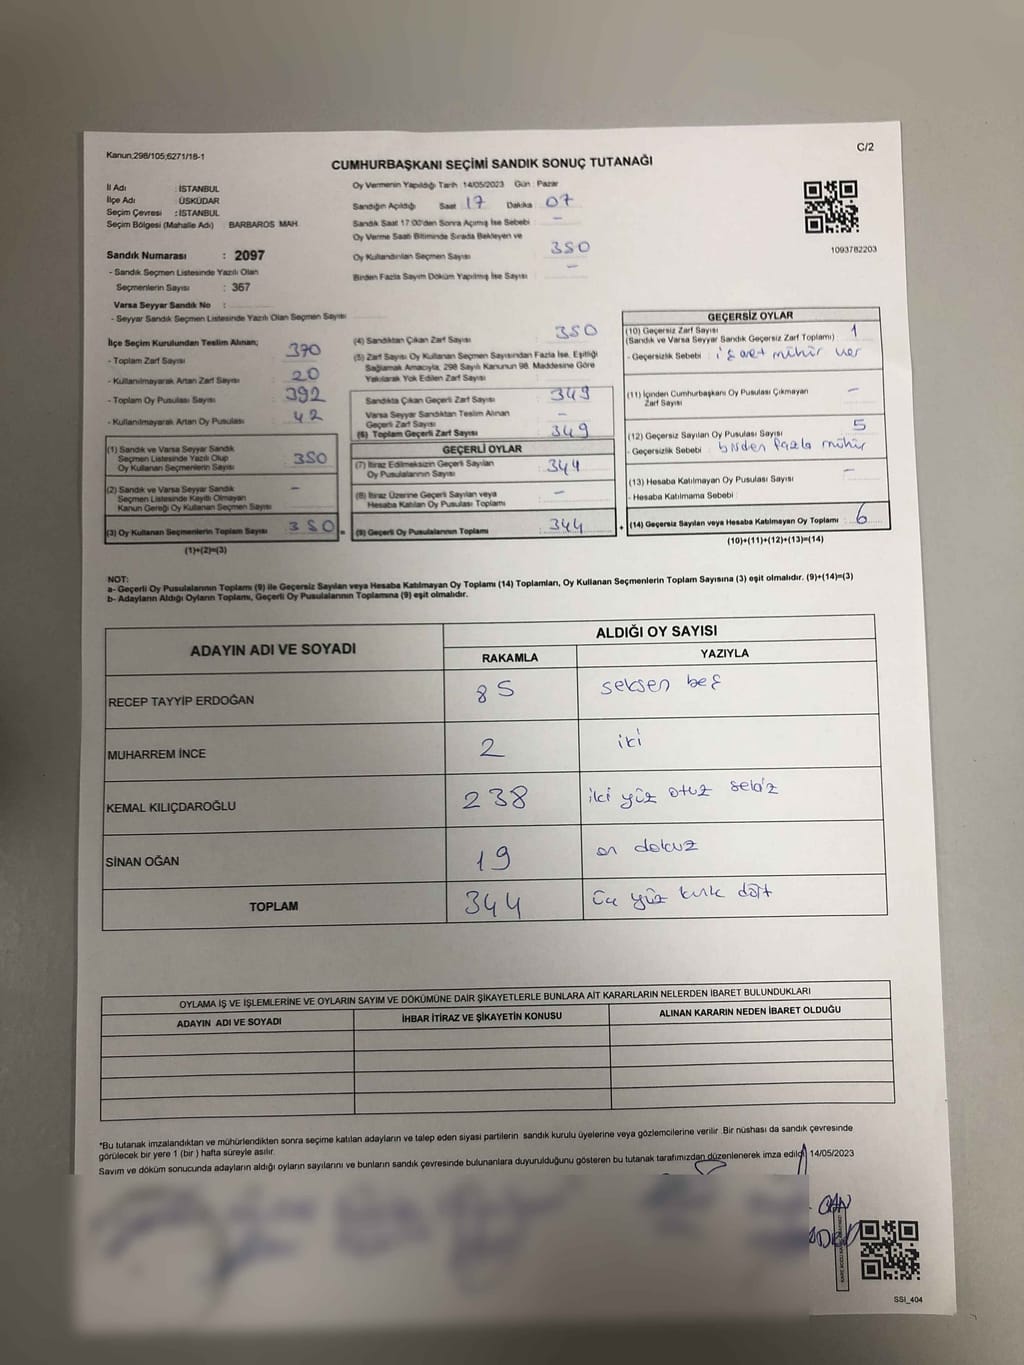 Kanun;298/105;6271/18-1
C/2
CUMHURBAŞKANI SEÇİMİ SANDIK SONUÇ TUTANAĞI
İl Adı : İSTANBUL
İlçe Adı : ÜSKÜDAR
Seçim Çevresi : İSTANBUL
Seçim Bölgesi (Mahalle Adı) BARBAROS MAH.
Sandık Numarası : 2097
- Sandık Seçmen Listesinde Yazılı Olan
Seçmenlerin Sayısı : 367
Varsa Seyyar Sandık No :
- Seyyar Sandık Seçmen Listesinde Yazılı Olan Seçmen Sayısı
Oy Vermenin Yapıldığı Tarih :14/05/2023 Gün : Pazar
Sandığın Açıldığı Saat 17 Dakika 07
Sandık Saat 17:00'den Sonra Açımış İse Sebebi –
Oy Verme Saati Bitiminde Sırada Bekleyen ve
Oy Kullandırılan Seçmen Sayısı 350
Birden Fazla Sayım Döküm Yapılmış İse Sayısı –
1093782203
İlçe Seçim Kurulundan Teslim Alınan;
- Toplam Zarf Sayısı 370
- Kullanılmayarak Artan Zarf Sayısı 20
- Toplam Oy Pusulası Sayısı 392
- Kullanılmayarak Artan Oy Pusulası 42
(1) Sandık ve Varsa Seyyar Sandık
Seçmen Listesinde Yazılı Olup
Oy Kullanan Seçmenlerin Sayısı 350
(2) Sandık ve Varsa Seyyar Sandık
Seçmen Listesinde Kayıtlı Olmayan
Kanun Gereği Oy Kullanan Seçmen Sayısı –
(3) Oy Kullanan Seçmenlerin Toplam Sayısı 350 =
(1)+(2)=(3)
(4) Sandıktan Çıkan Zarf Sayısı 350
(5) Zarf Sayısı Oy Kullanan Seçmen Sayısından Fazla İse, Eşitliği
Sağlamak Amacıyla, 298 Sayılı Kanunun 98. Maddesine Göre
Yakılarak Yok Edilen Zarf Sayısı :
Sandıkta Çıkan Geçerli Zarf Sayısı 349
Varsa Seyyar Sandıktan Teslim Alınan
Geçerli Zarf Sayısı –
(6) Toplam Geçerli Zarf Sayısı 349
GEÇERLİ OYLAR
(7) İtiraz Edilmeksizin Geçerli Sayılan
Oy Pusulasının Sayısı : 344
(8) İtiraz Üzerine Geçerli Sayılan veya
Hesaba Katılan Oy Pusulası Toplamı –
(9) Geçerli Oy Pusulalarının Toplamı : 344 +
GEÇERSİZ OYLAR
(10) Geçersiz Zarf Sayısı
(Sandık ve Varsa Seyyar Sandık Geçersiz Zarf Toplamı) : 1
- Geçersizlik Sebebi : işaret mühür var
(11) İçinden Cumhurbaşkanı Oy Pusulası Çıkmayan
Zarf Sayısı –
(12) Geçersiz Sayılan Oy Pusulası Sayısı 5
- Geçersizlik Sebebi : birden fazla mühür
(13) Hesaba Katılmayan Oy Pusulası Sayısı –
- Hesaba Katılmama Sebebi :
(14) Geçersiz Sayılan veya Hesaba Katılmayan Oy Toplamı : 6
(10)+(11)+(12)+(13)=(14)
NOT:
a- Geçerli Oy Pusulalarının Toplamı (9) ile Geçersiz Sayılan veya Hesaba Katılmayan Oy Toplamı (14) Toplamları, Oy Kullanan Seçmenlerin Toplam Sayısına (3) eşit olmalıdır. (9)+(14)=(3)
b- Adayların Aldığı Oyların Toplamı, Geçerli Oy Pusulalarının Toplamına (9) eşit olmalıdır.
ADAYIN ADI VE SOYADI ALDIĞI OY SAYISI
RAKAMLA YAZIYLA
RECEP TAYYİP ERDOĞAN 85 seksen beş
MUHARREM İNCE 2 iki
KEMAL KILIÇDAROĞLU 238 iki yüz otuz sekiz
SİNAN OĞAN 19 on dokuz
TOPLAM 344 üç yüz kırk dört
OYLAMA İŞ VE İŞLEMLERİNE VE OYLARIN SAYIM VE DÖKÜMÜNE DAİR ŞİKAYETLERLE BUNLARA AİT KARARLARIN NELERDEN İBARET BULUNDUKLARI
ADAYIN ADI VE SOYADI İHBAR İTİRAZ VE ŞİKAYETİN KONUSU ALINAN KARARIN NEDEN İBARET OLDUĞU
*Bu tutanak imzalandıktan ve mühürlendikten sonra seçime katılan adayların ve talep eden siyasi partilerin sandık kurulu üyelerine veya gözlemcilerine verilir. Bir nüshası da sandık çevresinde
görülecek bir yere 1 (bir ) hafta süreyle asılır.
Sayım ve döküm sonucunda adayların aldığı oyların sayılarını ve bunların sandık çevresinde bulunanlara duyurulduğunu gösteren bu tutanak tarafımızdan düzenlenerek imza edildi 14/05/2023
SSI_404